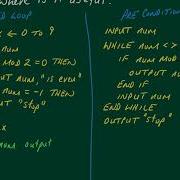 where is it useful?
D LOOP
← 0 TO 9
num
MOD 2 = 0 THEN
PUT num, "is even"
num = -1 THEN
PUT "stop"
x
num output
PRE CONDITION
INPUT num
WHILE num <>
IF num MOD
OUTPUT n
END IF
INPUT num
END WHILE
OUTPUT "stop"